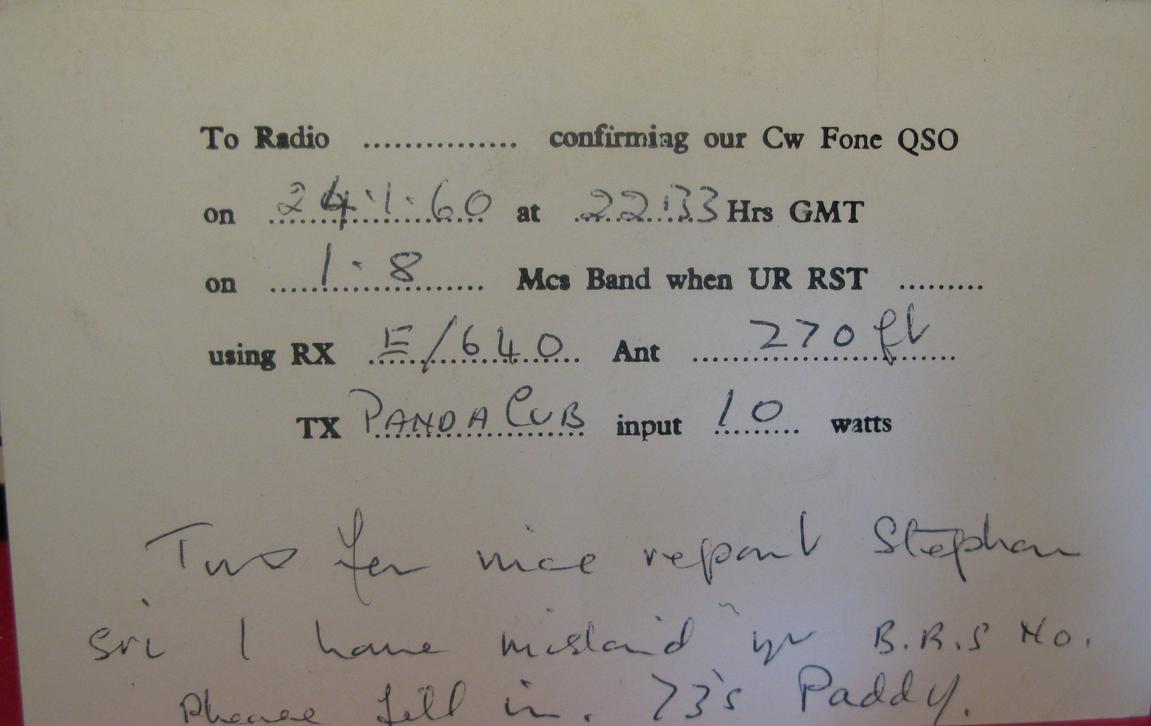 To Radio ............... confirming our Cw Fone QSO
on 24.1.60 at 22.33 Hrs GMT
on 1.8 Mcs Band when UR RST .........
using RX E/640 Ant 270 ft
TX PANDA CUB input 10 watts
Tnx fer nice report Stephen
sri I have mislaid yr B.R.S No.
Please fill in. 73's Paddy.